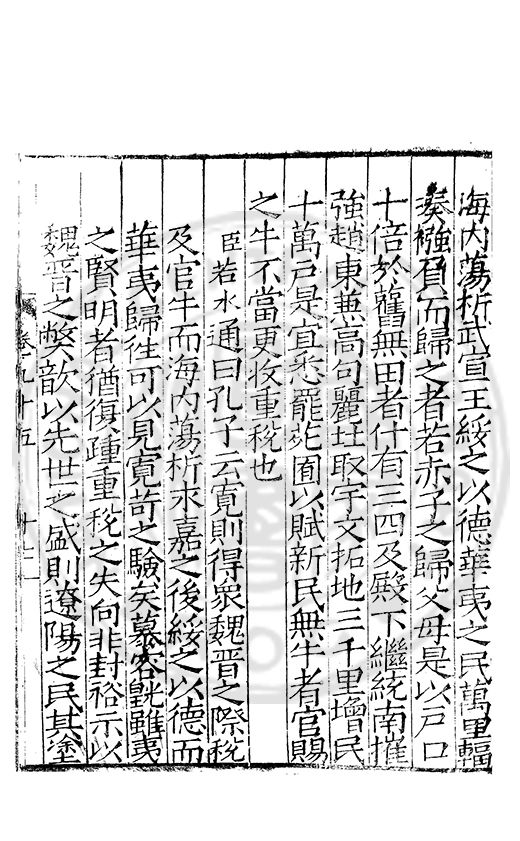 海内蕩析武宣王綏之以德華夷之民萬里輻
湊襁負而歸之者若赤子之歸父母是以戸口
十倍於舊無田者什有三四及殿下繼統南摧
強趙東兼高句麗北取宇文拓地三千里增民
十萬戸是宜悉罷苑囿以賦新民無牛者官賜
之牛不當更收重稅也
臣若水通曰孔子云寛則得衆魏晉之際稅
及官牛而海内蕩析永嘉之後綏之以德而
華夷歸徃可以見寛苛之驗矣慕容皝雖夷
之賢明者猶復踵重稅之失向非封裕示以
魏晉之獘歆以先世之盛則遼陽之民其塗
卷九十五